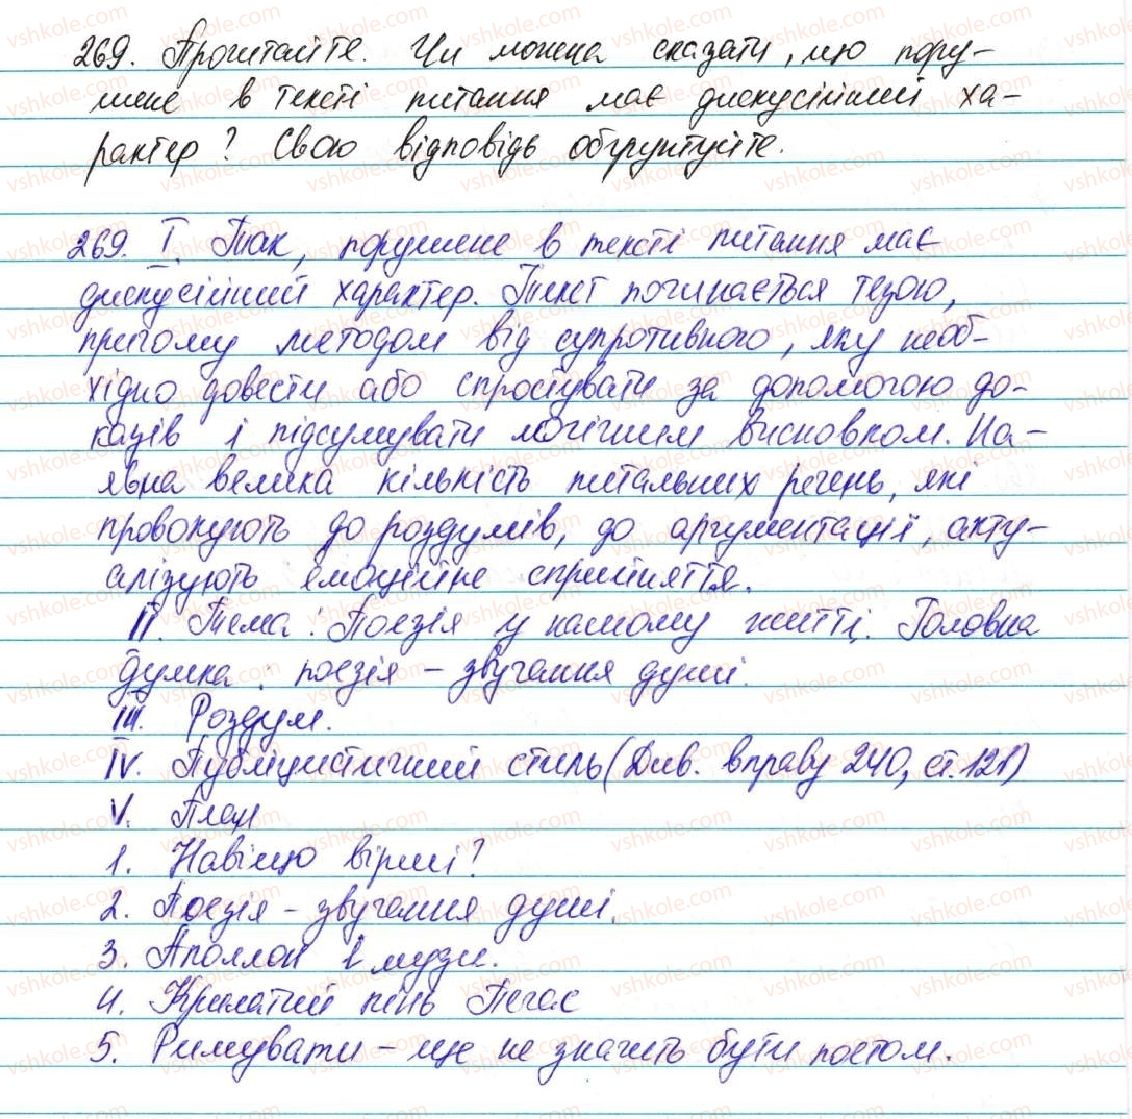 269. Прочитайте. Чи можна сказати, що пору-
шене в тексті питання має дискусійний ха-
рактер? Свою відповідь обґрунтуйте.
269. I. Так, порушене в тексті питання має
дискусійний характер. Текст починається тезою,
причому методом від супротивного, яку необ-
хідно довести або спростувати за допомогою до-
казів і підсумувати логічним висновком. На-
явна велика кількість питальних речень, які
провокують до роздумів, до аргументації, акту-
алізують емоційне сприйняття.
II. Тема: Поезія у нашому житті. Головна
думка: поезія – звучання душі.
III. Роздум.
IV. Публіцистичний стиль (Див. вправу 240, ст. 121)
V. План
1. Навіщо вірші?
2. Поезія – звучання душі.
3. Аполлон і музи.
4. Крилатий кінь Пегас
5. Римувати – ще не значить бути поетом.
vshkole.com